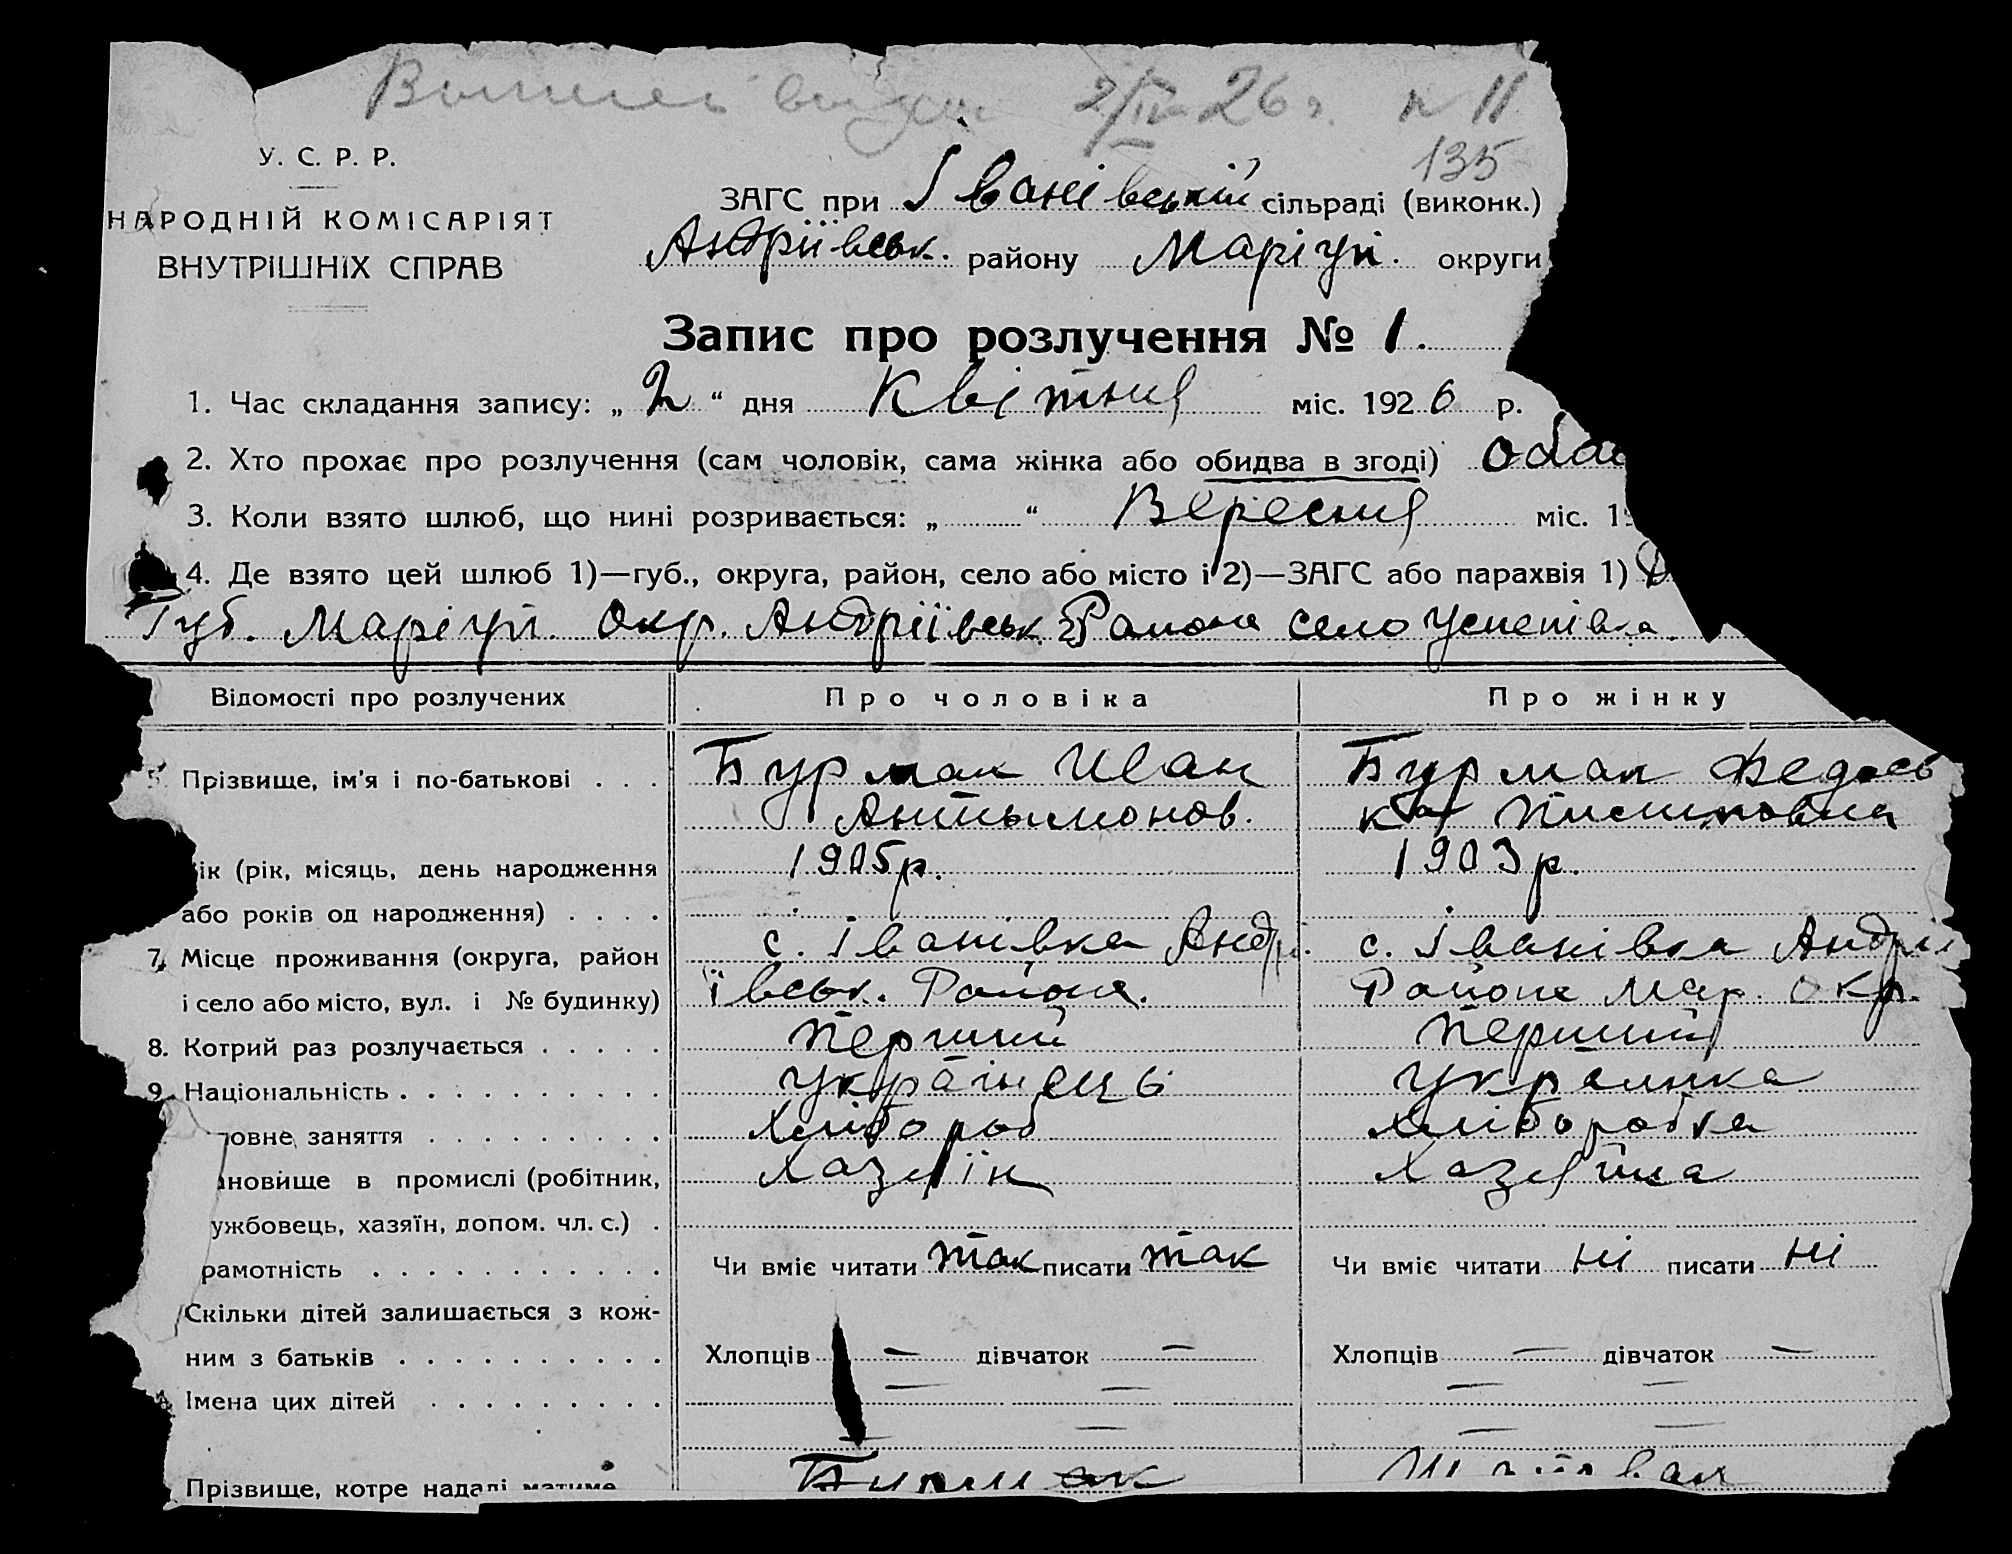 2/IV 26 г. n 11
135
У. С. Р. Р.
НАРОДНІЙ КОМІСАРІЯТ
ВНУТРІШНІХ СПРАВ
ЗАГС при Іванівській сільраді (виконк.)
Андріївськ. району Маріуп. округи
Запис про розлучення № 1.
1. Час складання запису: „2“ дня Квітня міс. 1926 р.
2. Хто прохає про розлучення (сам чоловік, сама жінка або обидва в згоді)
3. Коли взято шлюб, що нині розривається: „ “ Вересня міс. 1
4. Де взято цей шлюб 1)—губ., округа, район, село або місто і 2)—ЗАГС або парахвія 1) Д
Губ. Маріуп. Окр. Андріївськ. Района село Успенівка
Відомості про розлучених Про чоловіка Про жінку
5. Прізвище, ім'я і по-батькові . . . Бурмак Иван Бурмак Федось
Антымонов. кая
ік (рік, місяць, день народження 1905 р. 1903 р.
або років од народження) . . . .
7. Місце проживання (округа, район с. Іванівка Андрі с. Іванівка Андрії
і село або місто, вул. і № будинку) ївськ. Района. Района Мар. Окр.
8. Котрий раз розлучається . . . . . Перший Перший
9. Національність . . . . . . . . . . Українець Украинка
ловне заняття . . . . . . . . . Хлібороб Хліборобка
ановище в промислі (робітник, Хазяїн Хазяйка
ужбовець, хазяїн, допом. чл. с.) .
рамотність . . . . . . . . . . . Чи вміє читати так писати так Чи вміє читати ні писати ні
Скільки дітей залишається з кож-
ним з батьків . . . . . . . . . . Хлопців — дівчаток — Хлопців — дівчаток —
Імена цих дітей . . . . . . . . . — — — —
— — — —
Прізвище, котре надалі матиме Бурмак